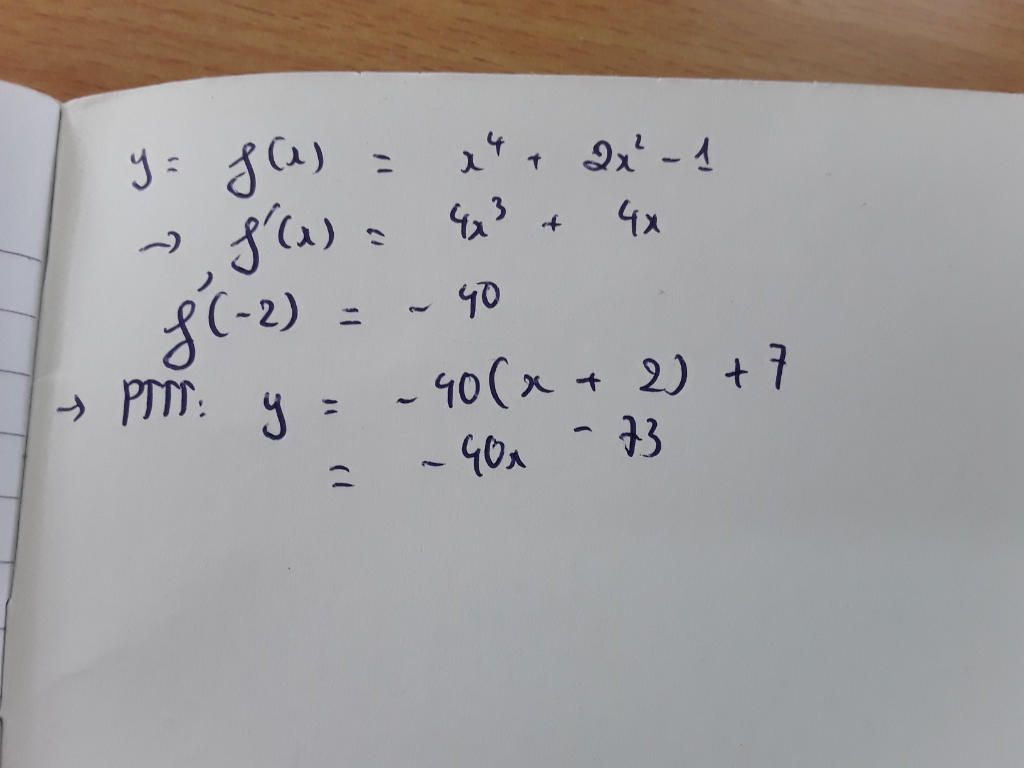 y = f(x) = x⁴ + 2x² - 1
→ f'(x) = 4x³ + 4x
f'(-2) = - 40
→ PTTT: y = - 40(x + 2) + 7
= - 40x - 73